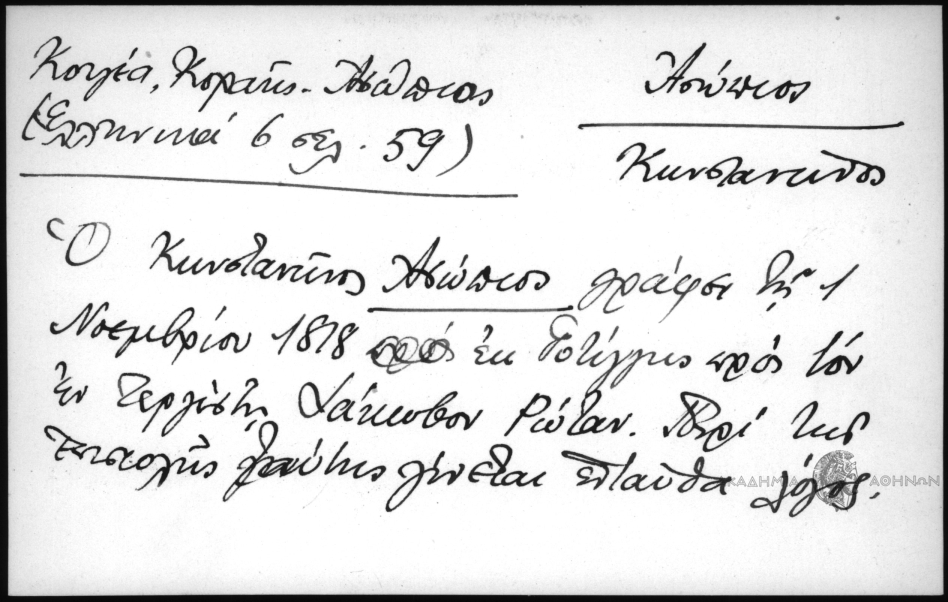 Κουγέα, Κοραῆς - Ἀσώπιος
(Ἑλληνικά 6 σελ. 59)
Ἀσώπιος
Κωνσταντῖνος
Ὁ Κωνσταντῖνος Ἀσώπιος γράφει τῇ 1
Νοεμβρίου 1818 ἐκ Γοτίγγης πρὸς τόν
ἐν Τεργέστῃ Ἰάκωβον Ρώταν. Περὶ τῆς
ἐπιστολῆς ταύτης γίνεται ἐνταῦθα λόγος.
ΑΚΑΔΗΜΙΑ ΑΘΗΝΩΝ